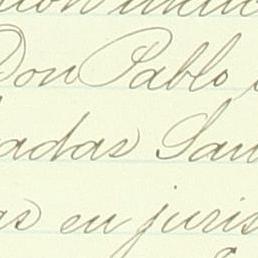 Don Pablo
adas San
as en juris